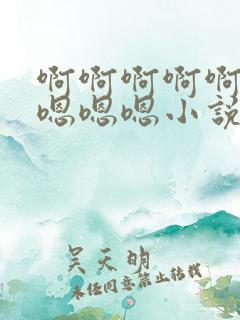 啊啊啊啊啊
嗯嗯嗯小说
吴天明
未经同意禁止转载